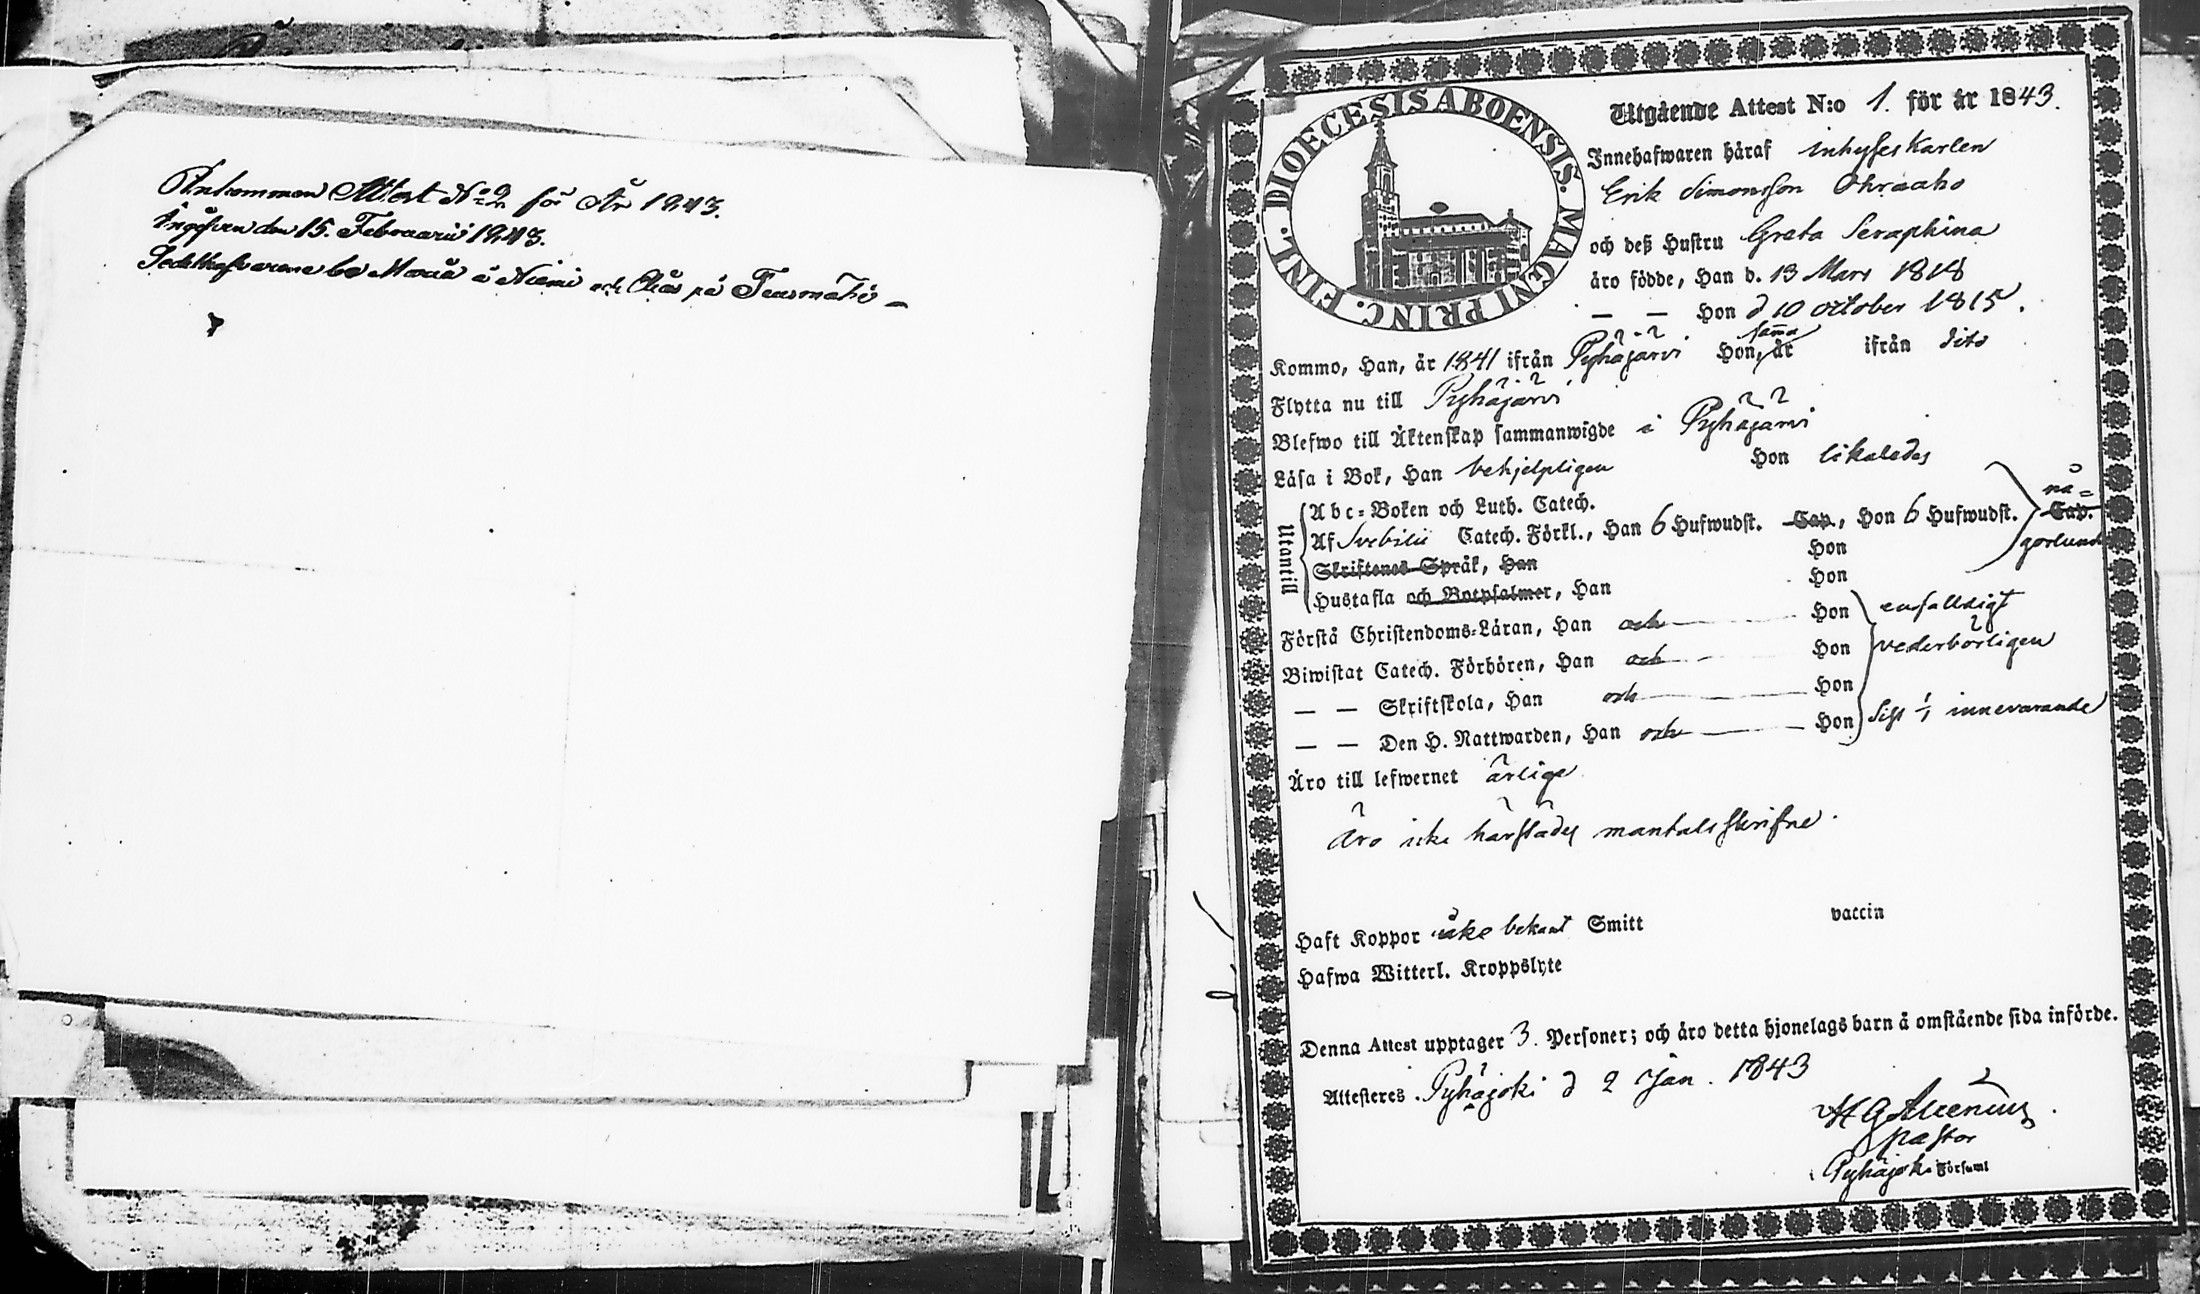 Ankommen Attest N:o 2 för År 1843.
Ingifven den 15. Februarii 1843.
å Niemi och på
DIOECESIS ABOENSIS. MAGNI PRINC. FINL.
Utgående Attest N:o 1. för år 1843.
Innehafwaren häraf inhyseskarlen
Erik Simonsson Ohraaho
och deß Hustru Greta Seraphina
äro födde, Han d. 13 Mars 1818
— — Hon d 10 october 1815.
Kommo, Han, år 1841 ifrån Pyhäjärvi Hon, samma år ifrån dito
Flytta nu till Pyhäjärvi
Blefwo till Äktenskap sammanwigde i Pyhäjärvi
Läsa i Bok, Han behjelpligen Hon likaledes
Utantill
Abc-Boken och Luth. Catech.
Af Svebilii Catech. Förkl., Han 6 Hufwudst. Cap., Hon 6 Hufwudst. Cap. någorlunda
Skriftenes Språk, Han Hon
Hustafla och Botpsalmer, Han Hon
Förstå Christendoms-Läran, Han och Hon enfalldigt
Biwistat Catech. Förhören, Han och Hon vederbörligen
— — Skriftskola, Han och Hon
— — Den H. Nattwarden, Han och Hon sist 1/1 innevarande
Äro till lefwernet ärliga
Äro icke härstädes mantalsskrifne.
Haft Koppor icke bekant Smitt vaccin
Hafwa Witterl. Kroppslyte
Denna Attest upptager 3. Personer; och äro detta hjonelags barn å omstående sida införde.
Attesteres. Pyhäjoki d 2 Jan. 1843
pastor
Pyhäjoki Församl